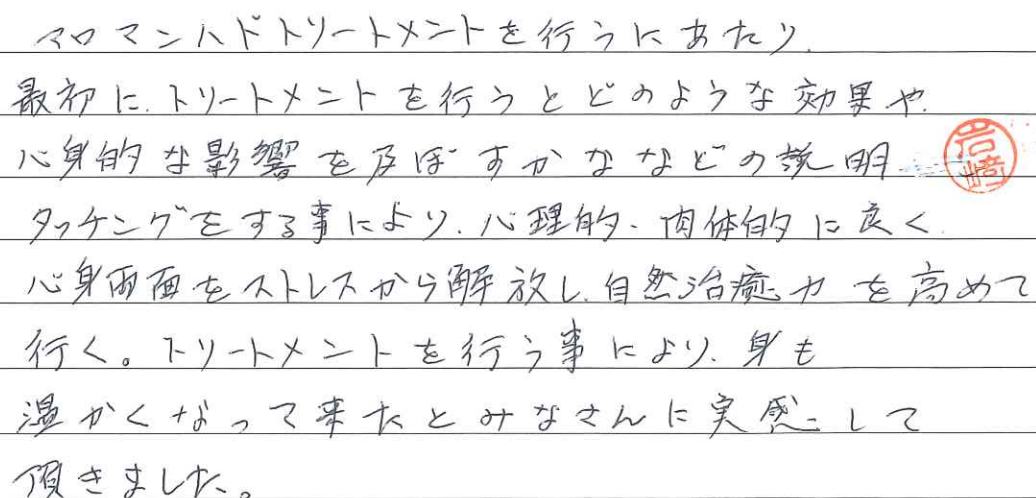 アロマンハドトリートメントを行うにあたり、
最初に、トリートメントを行うとどのような効果や、
心身的な影響を及ぼすかななどの説明
岩崎
タッチングをする事により、心理的、肉体的に良く、
心身両面をストレスから解放し、自然治癒力を高めて
行く。トリートメントを行う事により、身も
温かくなって来たとみなさんに実感して
頂きました。